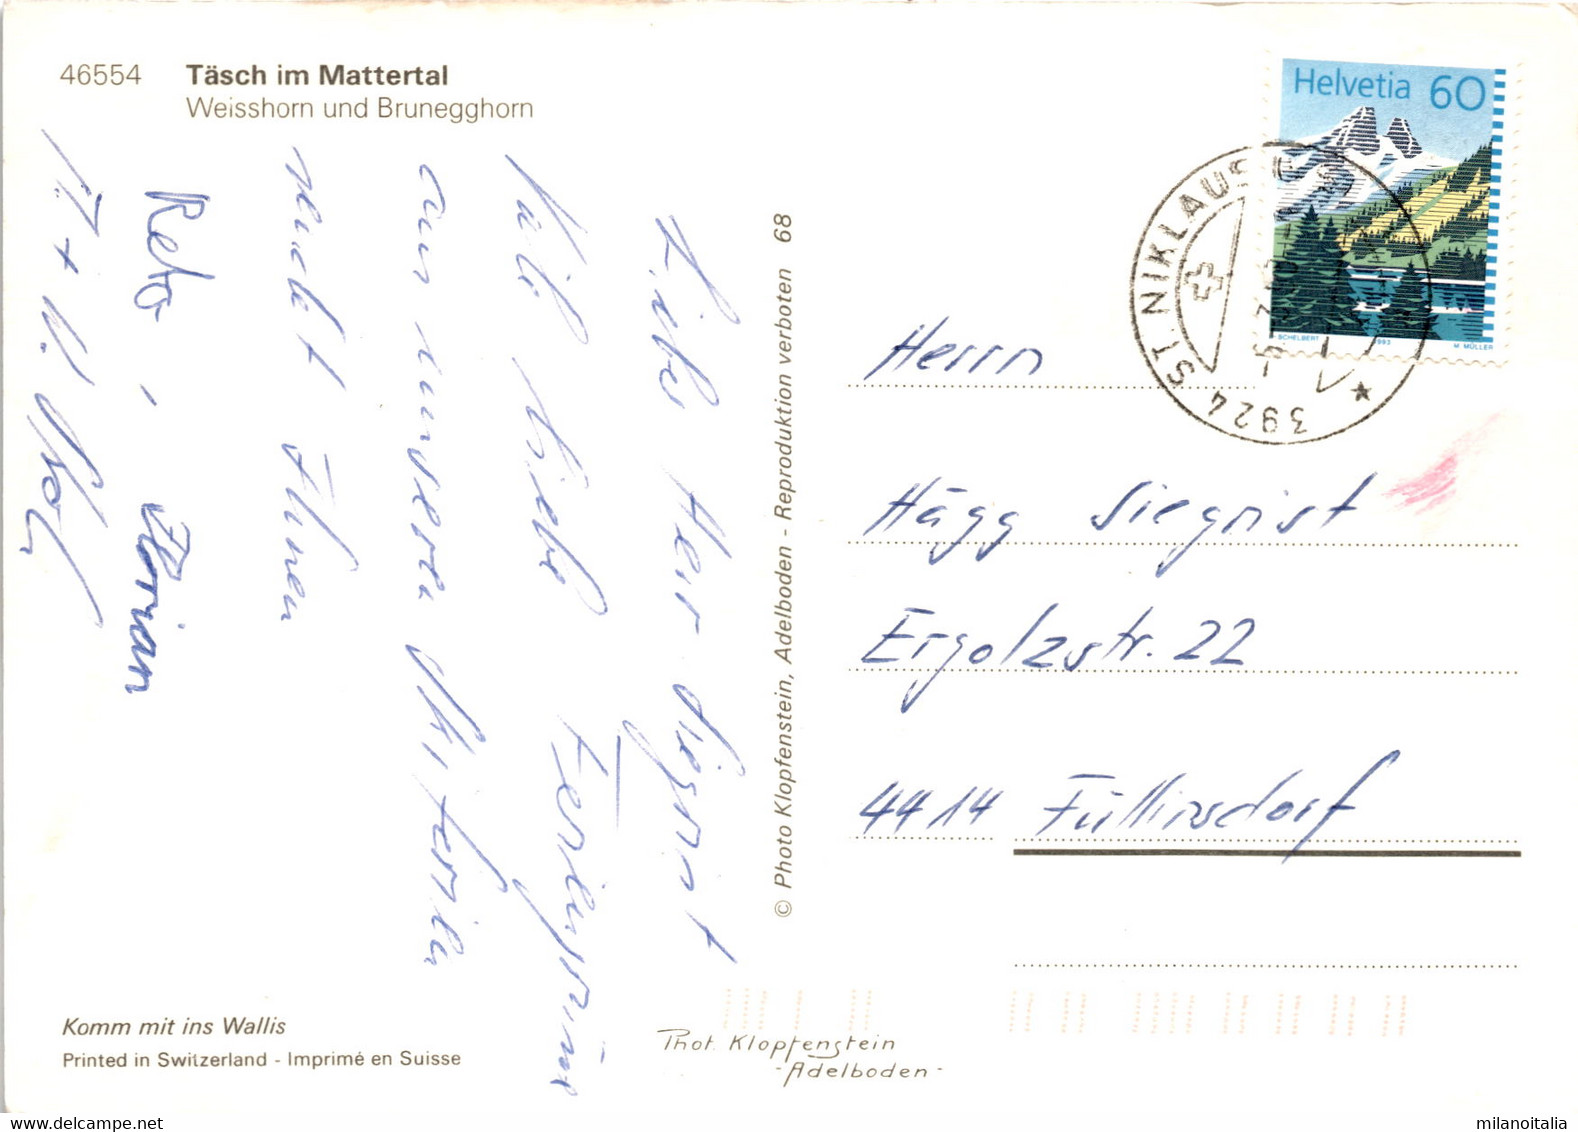 46554 Täsch im Mattertal
Weisshorn und Brunegghorn
Liebe Herr Siegrist
Viele liebe Feriengrüsse
aus unseren Skiferien
sendet Ihnen
Reto, Florian
Komm mit ins Wallis
Printed in Switzerland - Imprimé en Suisse
© Photo Klopfenstein, Adelboden - Reproduktion verboten 68
Phot. Klopfenstein
- Adelboden -
Helvetia 60
SCHELBERT 1993 M. MÜLLER
3924 ST. NIKLAUS
Herrn
Hägg Siegrist
Ergolzstr. 22
4414 Füllinsdorf
www.delcampe.net
milanoitalia